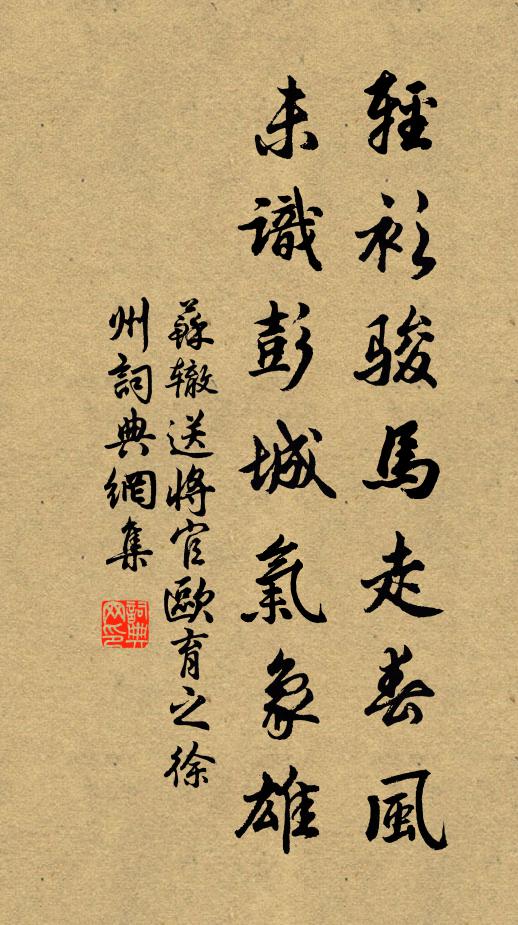 輕衫駿馬走春風
未識彭城氣象雄
蘇轍送將官歐育之徐
州詞典網集
詞典
网印